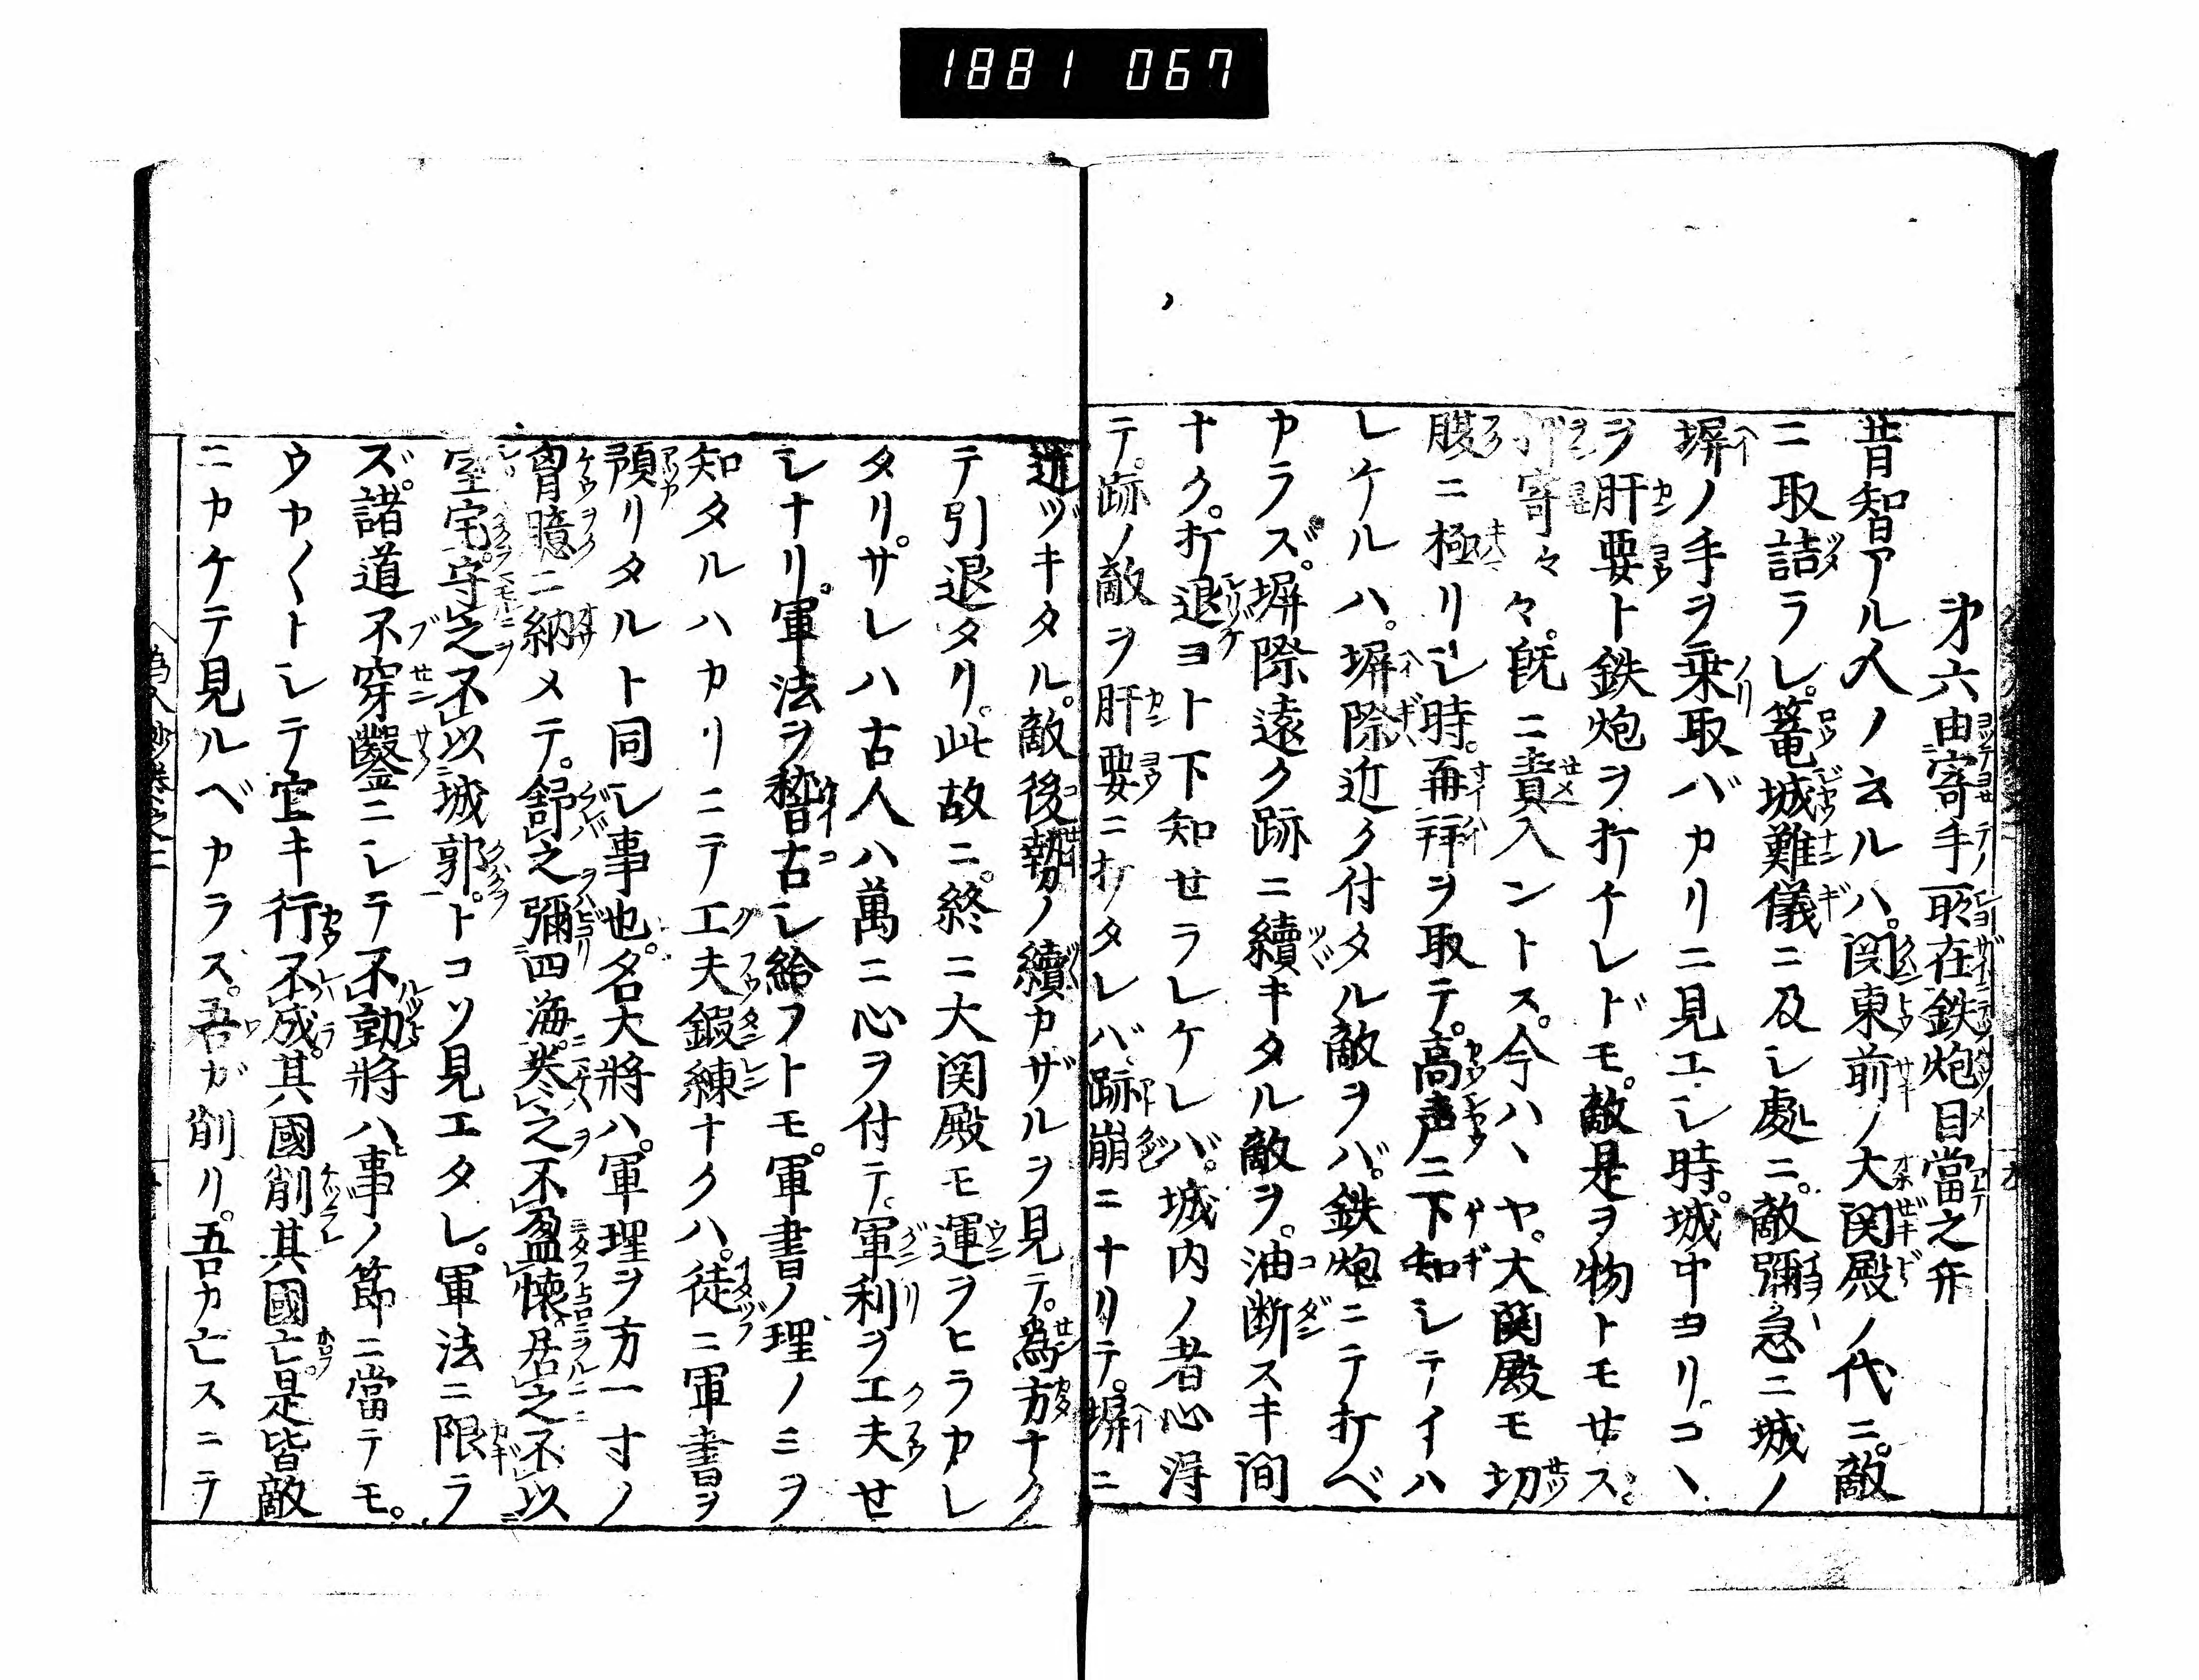 1881 067
才六由寄手所在鉄炮目當之弁
昔智アル人ノ云ルハ。関東前ノ大関殿ノ代ニ。敵
ニ取詰ラレ。篭城難儀ニ及レ處ニ。敵彌急ニ城ノ
塀ノ手ヲ乗取バカリニ見エシ時。城中ヨリ。コヽ
ヲ肝要ト鉄炮ヲ打チレドモ。敵是ヲ物トモせス。
押寄々々。既ニ責入ントス。今ハヽヤ。大関殿モ切
腹ニ極リシ時。再拝ヲ取テ。高声ニ下知シテイハ
レケルハ。塀際近ク付タル敵ヲバ。鉄炮ニテ打ベ
カラズ。塀際遠ク跡ニ續キタル敵ヲ。油断スキ間
ナク。打退ヨト下知せラレケレバ。城内ノ者心得
テ。跡ノ敵ヲ肝要ニ打タレバ。跡崩ニナリテ。塀ニ
近ヅキタル。敵後勢ノ續カザルヲ見テ。為方ナク
テ引退タリ。此故ニ。終ニ大関殿モ運ヲヒラカレ
タリ。サレハ古人ハ萬ニ心ヲ付テ。軍利ヲ工夫せ
シナリ。軍法ヲ稽古シ給フトモ。軍書ノ理ノミヲ
知タルハカリニテ工夫鍛練ナクハ。徒ニ軍書ヲ
預リタルト同シ事也。名大將ハ。軍理ヲ方一寸ノ
胷臆ニ納メテ。舒之彌四海。巻之不盈懐。居之不以
室宅。守之不以城郭。トコソ見エタレ。軍法ニ限ラ
ズ。諸道不穿鑿ニシテ不勤將ハ事ノ節ニ當テモ。
ウカ〱トシテ宜キ行不成。其國削其國亡。是皆敵
ニカケテ見ルベカラス。吾ガ削リ。吾カ亡スニテ